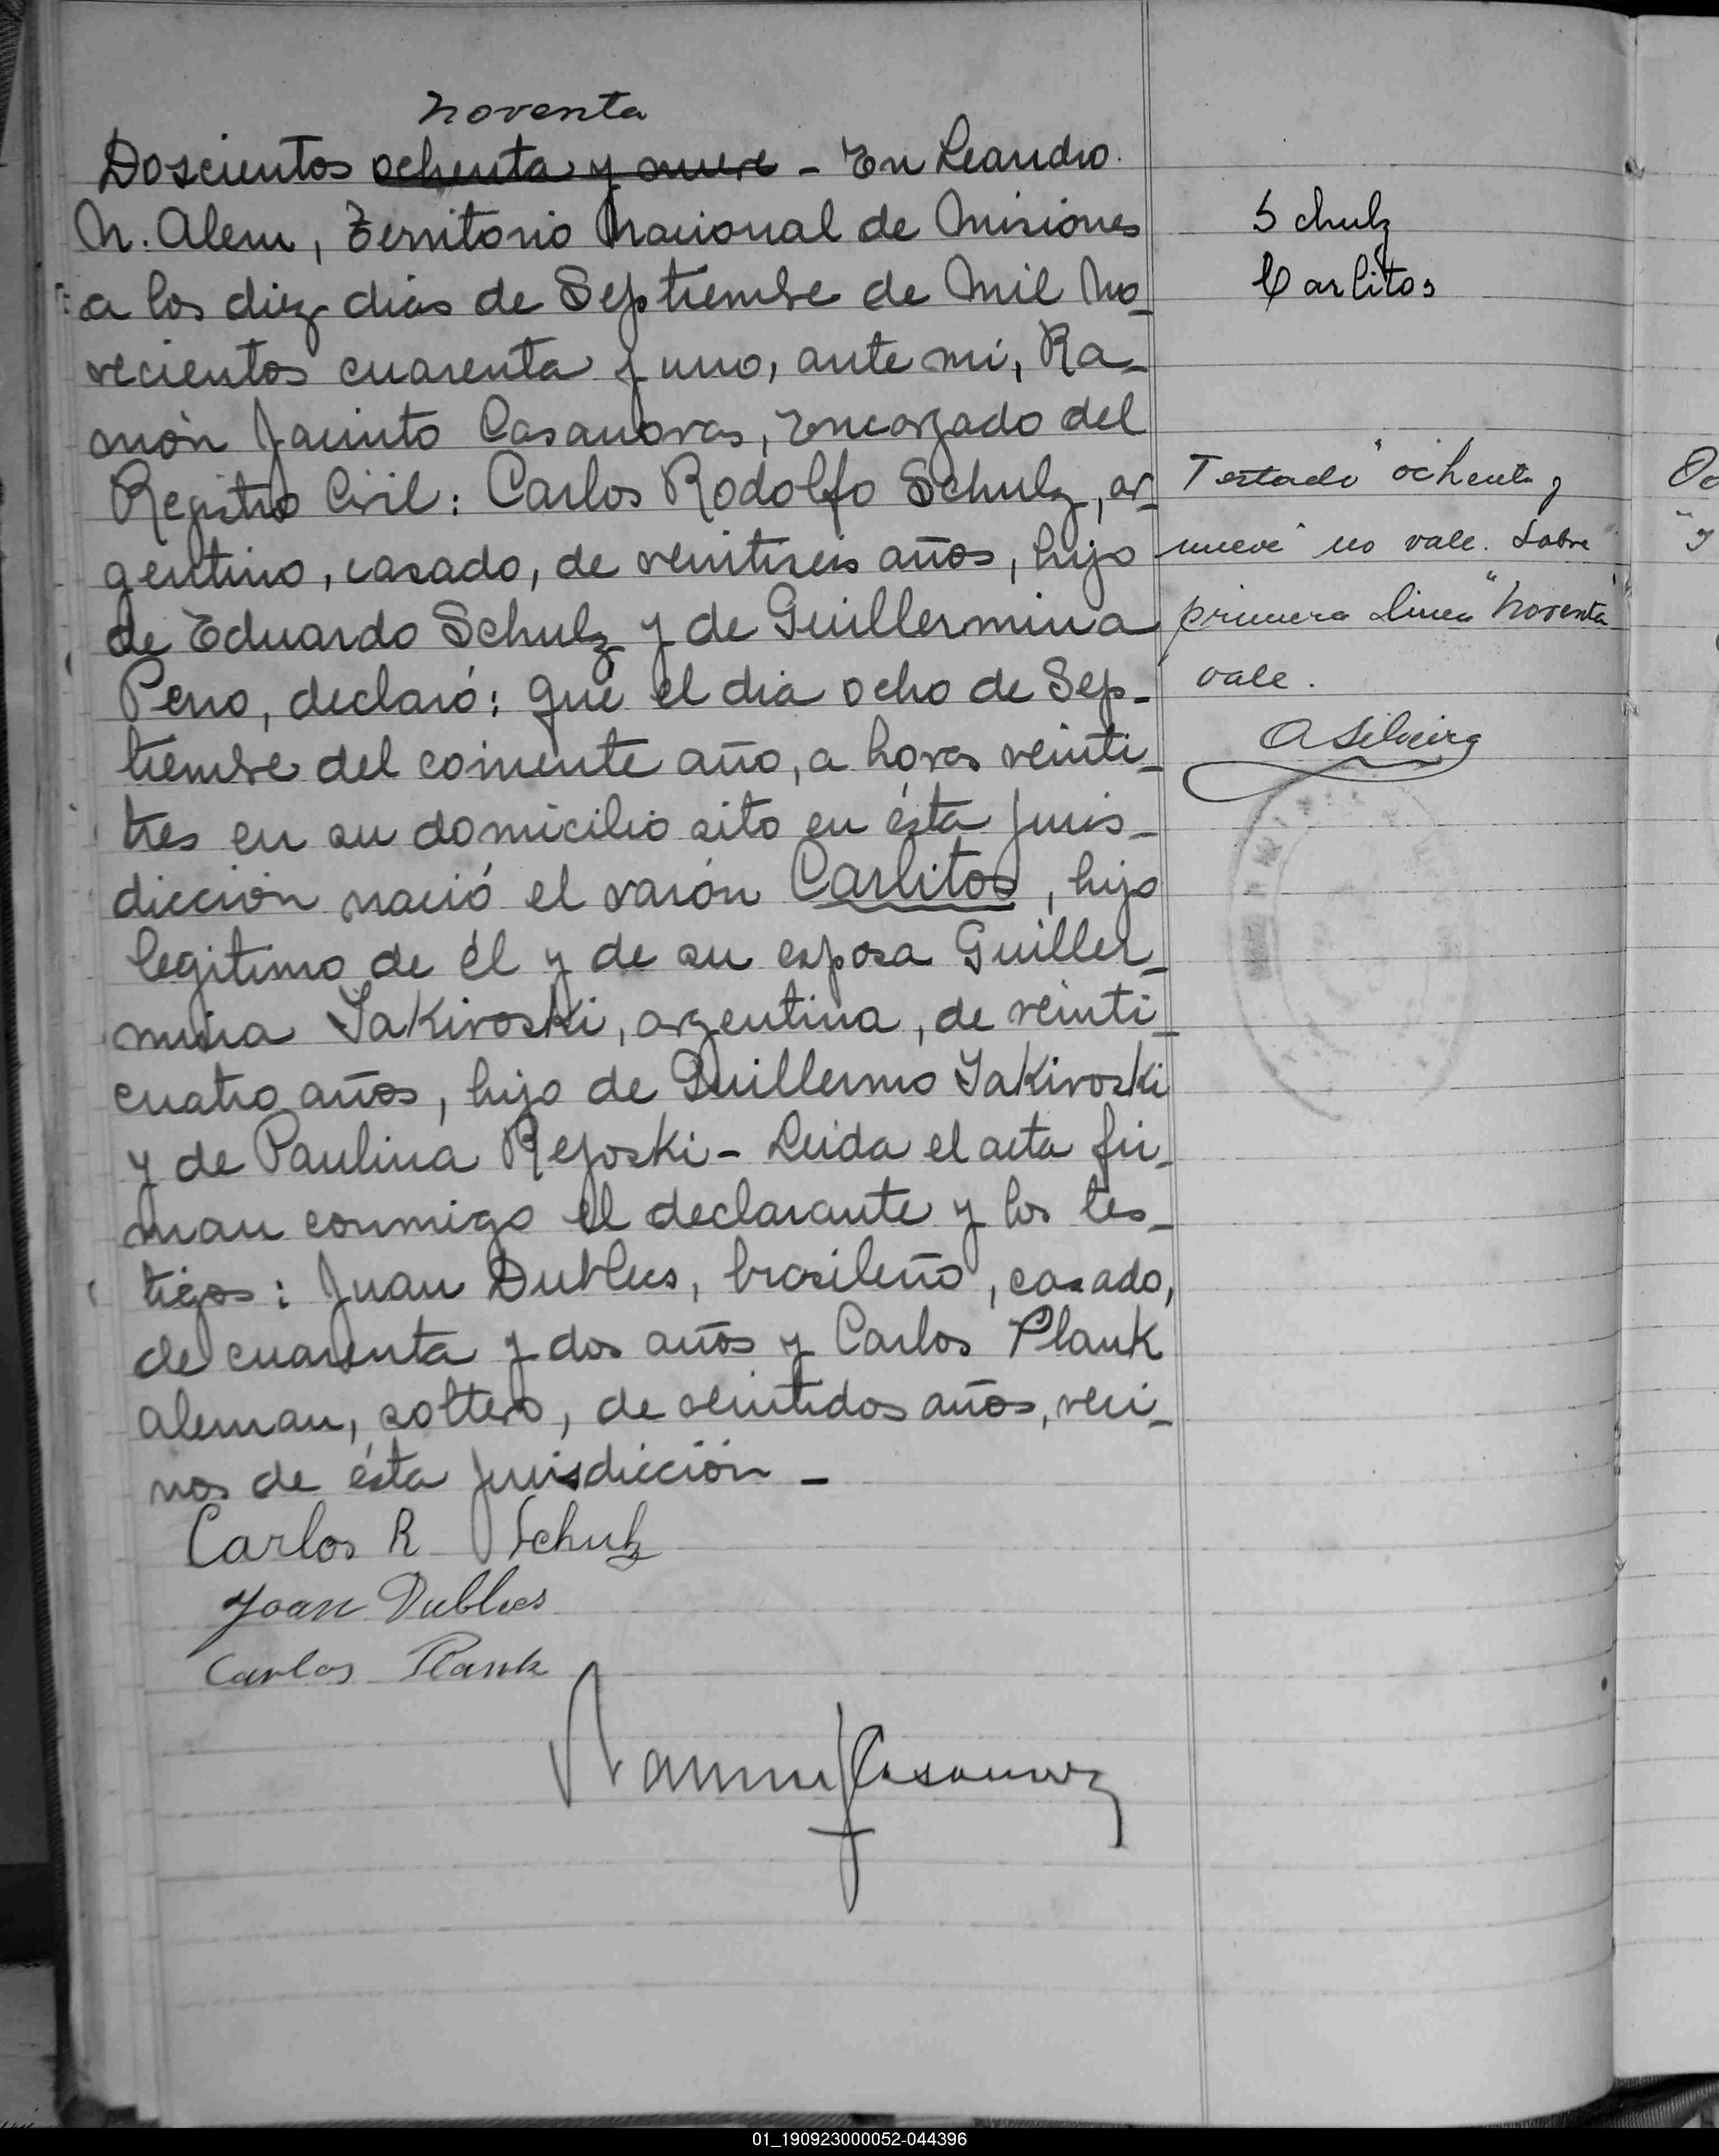 noventa
Doscientos ochenta y nueve - En Leandro
N. Alem, Territorio Nacional de Misiones
a los diez dias de Septiembre de Mil No_
vecientos cuarenta y uno, ante mi, Ra_
món Jacinto Casanovas, Encargado del
Registro Civil: Carlos Rodolfo Schulz, ar_
gentino, casado, de veintiseis años, hijo
de Eduardo Schulz y de Guillermina
Peno, declaró: Que el dia ocho de Sep_
tiembre del corriente año, a horas veinti_
tres en su domicilio sito en ésta juris_
dicción nació el varón Carlitos, hijo
legitimo de él y de su esposa Guiller_
mina Yakiroski, argentina, de veinti_
cuatro años, hijo de Guillermo Yakiroski
y de Paulina Rejoski - Leida el acta fir_
man conmigo el declarante y los tes_
tigos: Juan Dublees, brasileño, casado,
de cuarenta y dos años y Carlos Plank
aleman, soltero, de veintidos años, veci_
nos de ésta jurisdicción _
Carlos R Schulz
Joan Dublees
Carlos Plank
Ramon J Casanovas
Schulz
Carlitos
Testado "ochenta y
nueve" no vale. Sobre
primera linea "noventa"
vale.
A Silveira
01_190923000052-044396